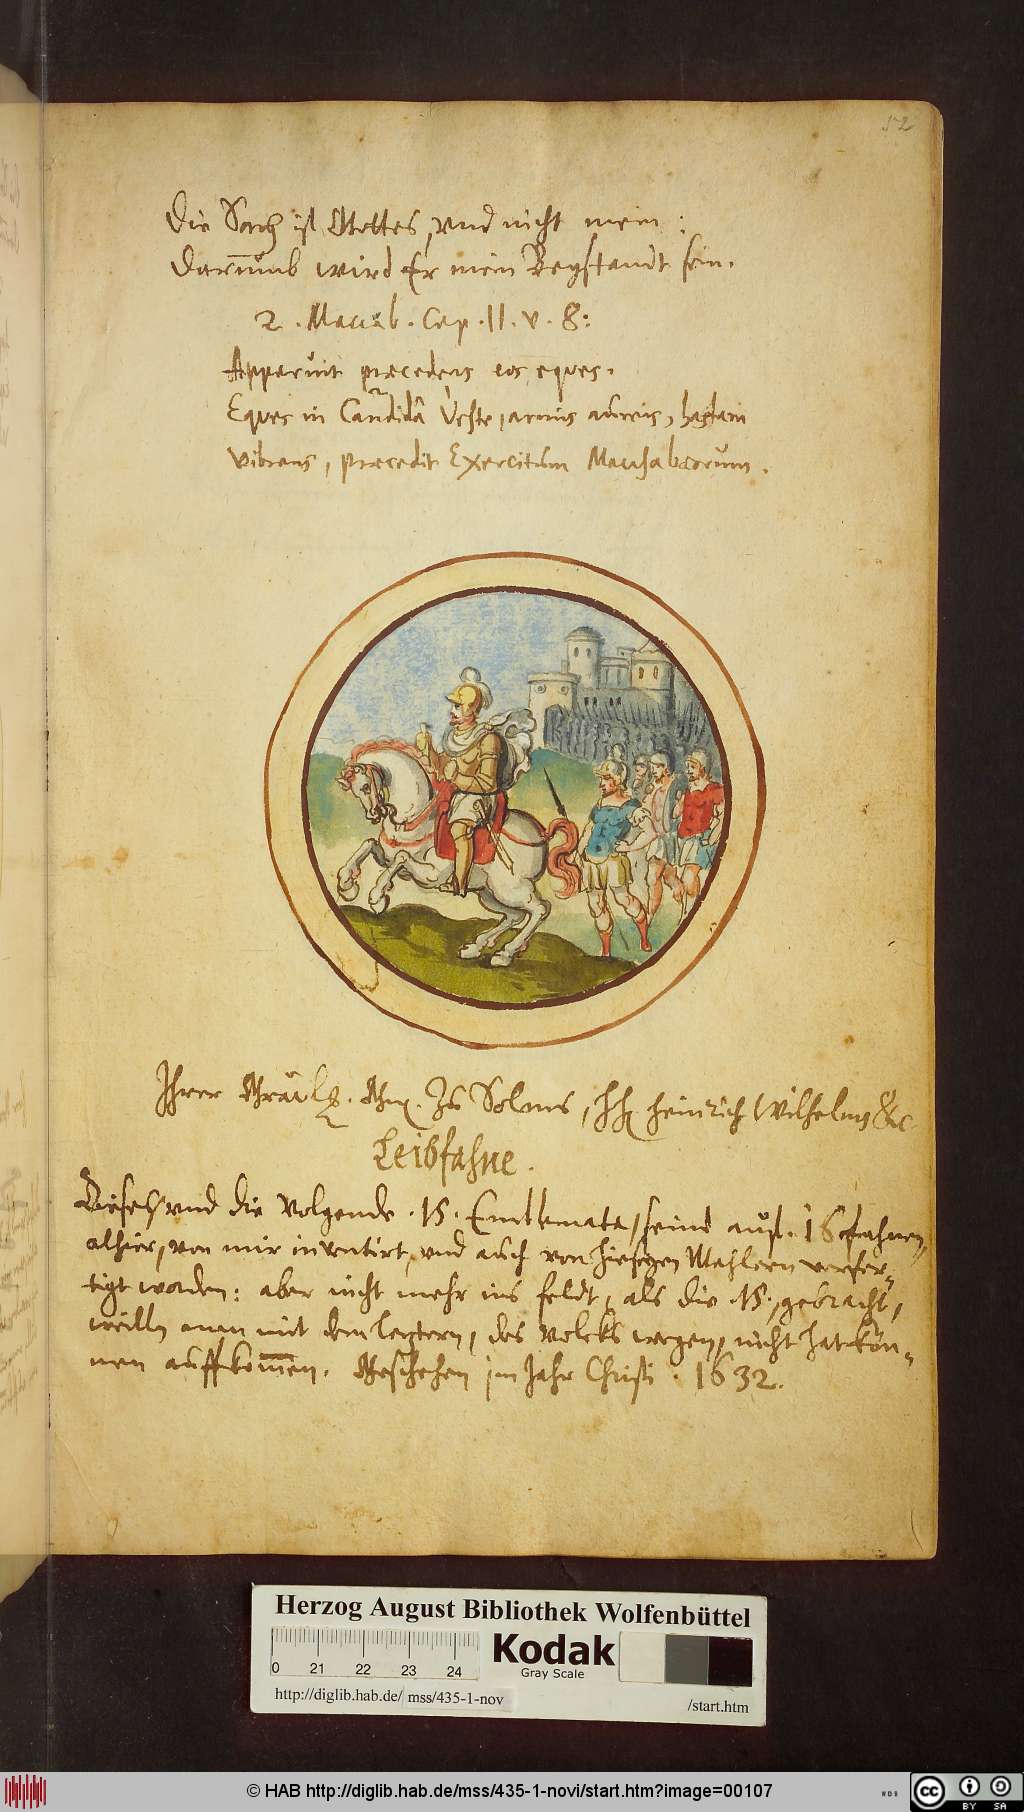 52
Die Sach ist Gottes, vnd nicht mein:
Darumb wird Er mein Beystandt sein.
2. Maccab. Cap. 11. v. 8:
Apparuit præcedens eos eques.
Eques in Candidâ Veste, armis aureis, hastam
vibrans, præcedit Exercitum Macchabæorum.
Ihrer Gräul. Gn. Zu Solms, HH Heinrich Wilhelms &c
Leibfahne.
Dieses vnd die Volgende .15. Emblemata, seind auf .16 fahnen,
alhier, von mir inventirt, vnd auch von hiesigen Mahlern verfer-
tigt worden: aber nicht mehr ins feldt, als die .15. gebracht,
weilln man mit dem letztern, des Volcks wegen, nicht hat kön-
nen auffkom̅en. Geschehen im Jahr Christi . 1632.
Herzog August Bibliothek Wolfenbüttel
0 21 22 23 24
Kodak
Gray Scale
http://diglib.hab.de/ mss/435-1-nov /start.htm
© HAB http://diglib.hab.de/mss/435-1-novi/start.htm?image=00107
WDB
cc BY SA